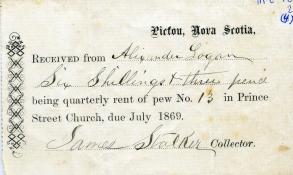 Pictou, Nova Scotia,
RECEIVED from Alexander Logan
Six Shillings & three pence
being quarterly rent of pew No. 13 in Prince
Street Church, due July 1869.
James Stalker Collector.